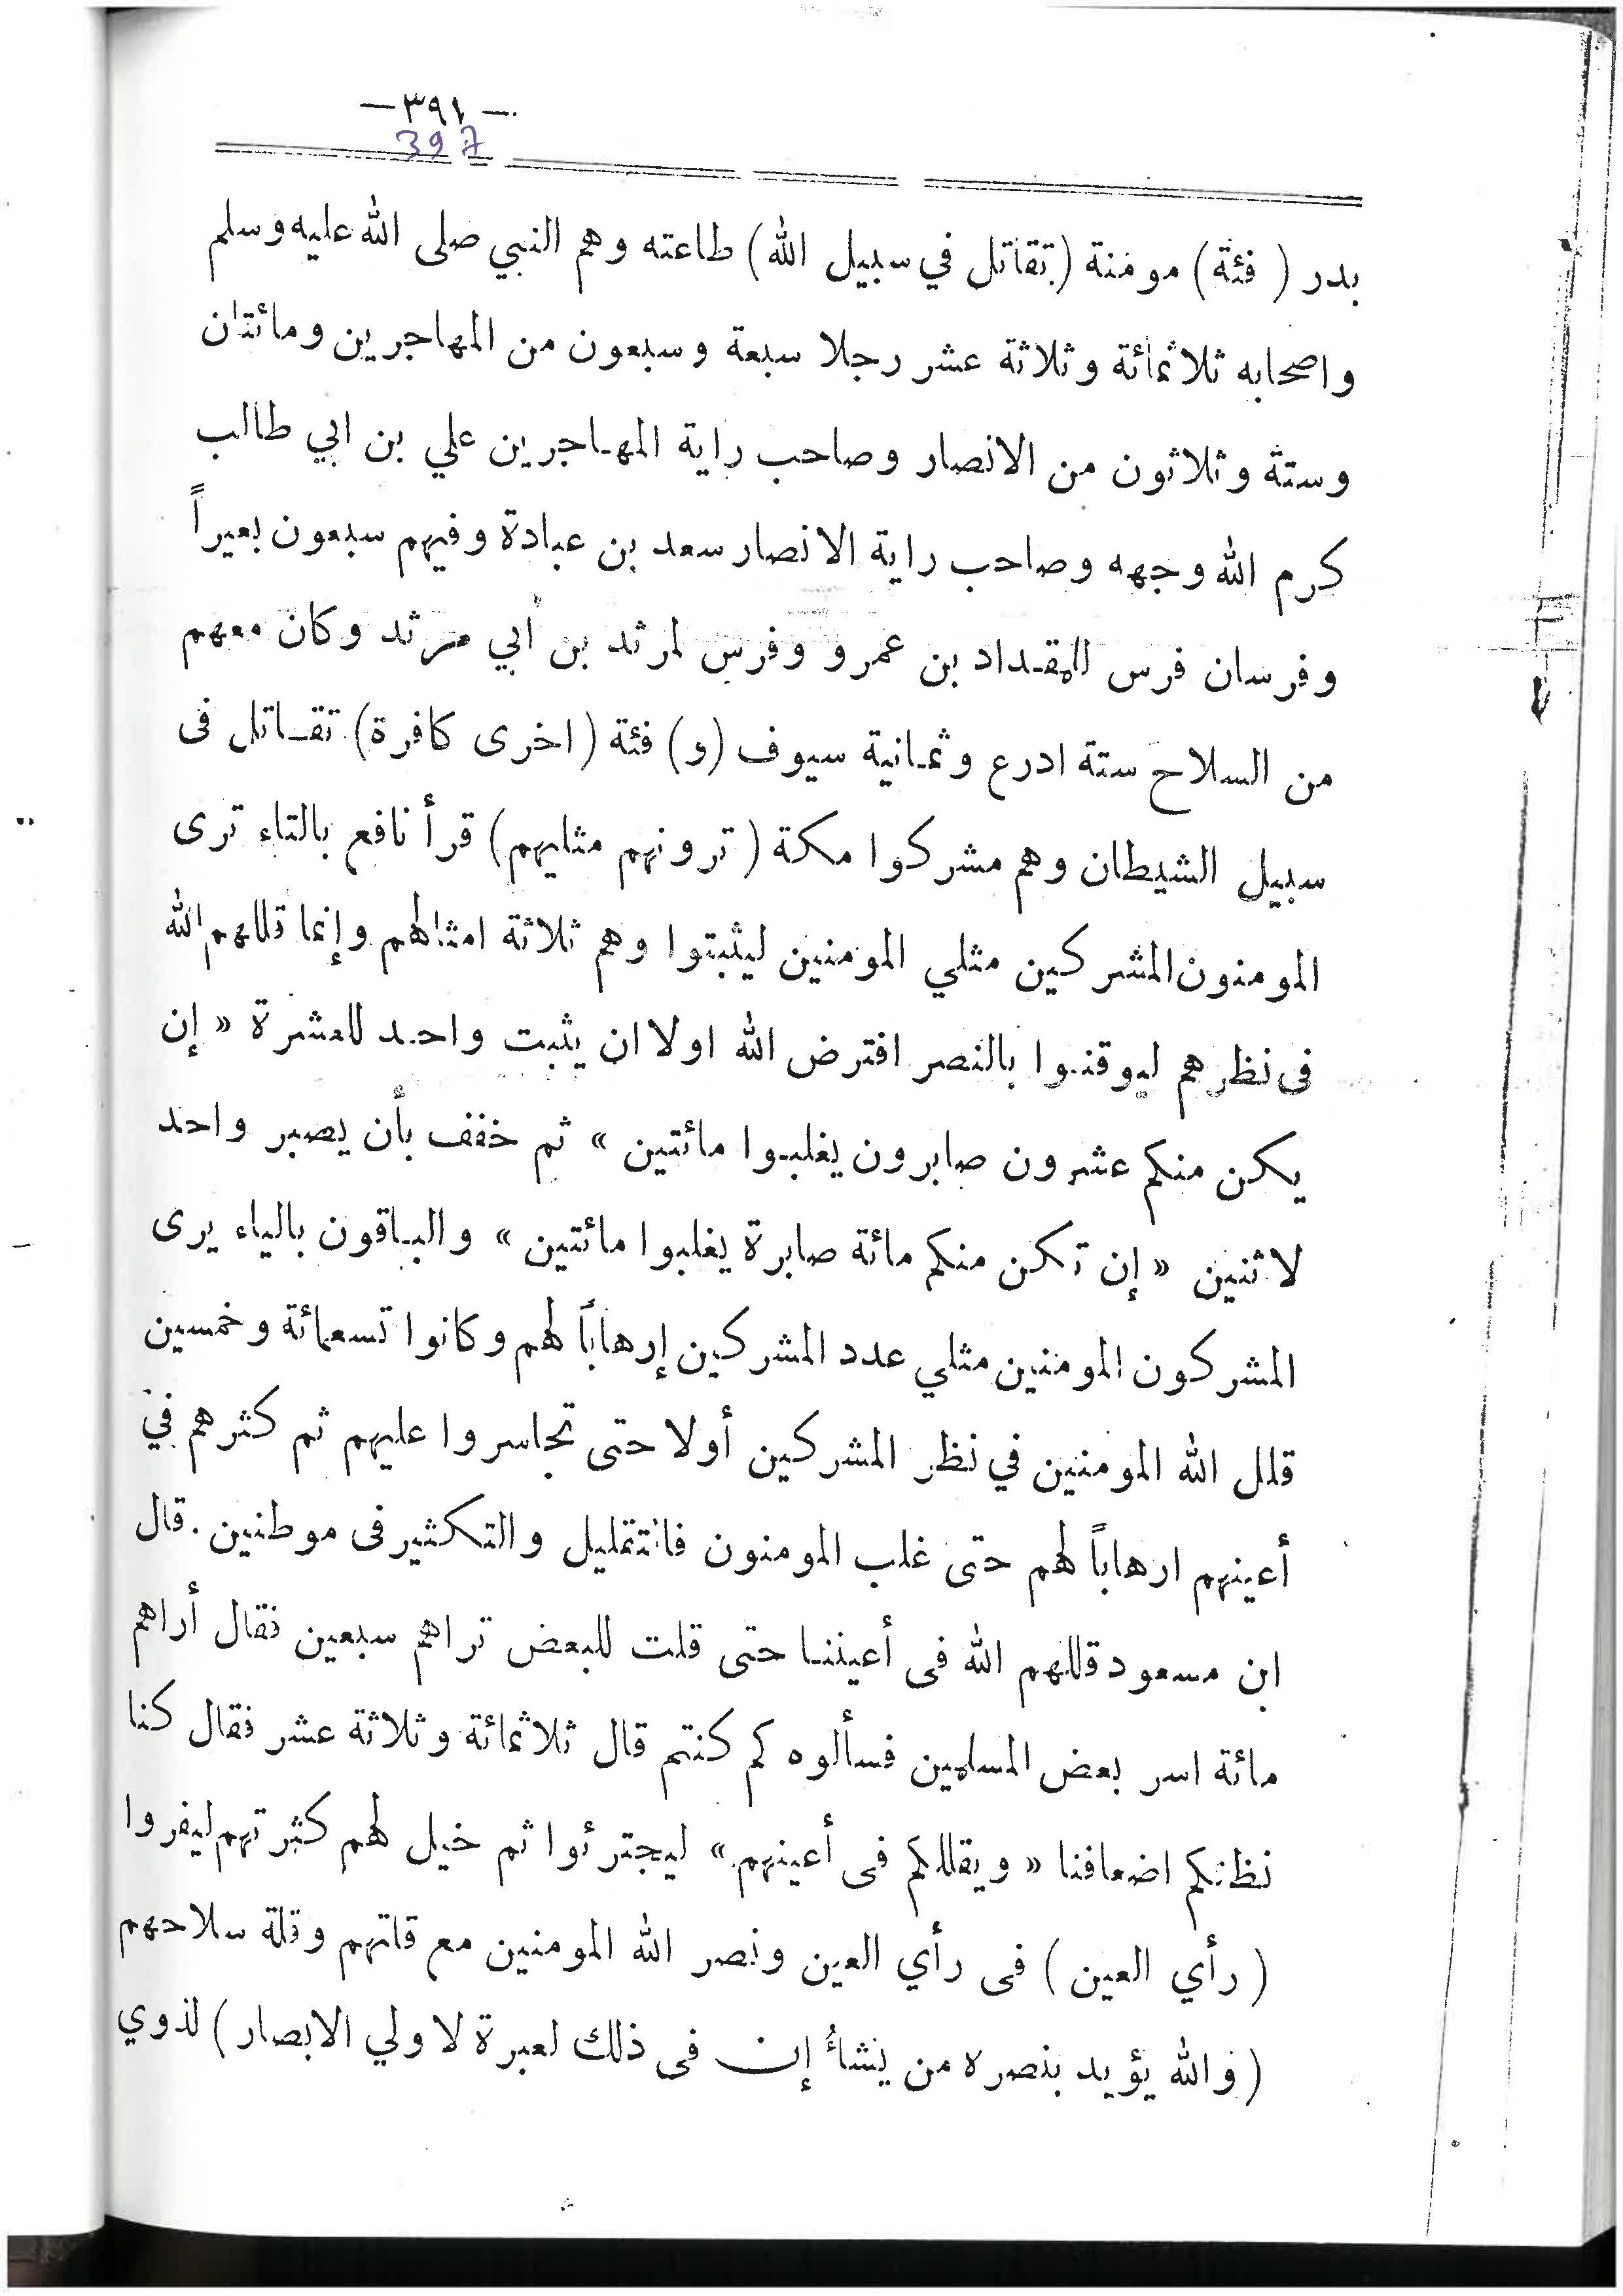 — ٣٩١ —
397
بدر ( فئة) مومنة (تقاتل في سبيل الله) طاعته وهم النبي صلى الله عليه وسلم
واصحابه ثلاثمائة وثلاثة عشر رجلا سبعة وسبعون من المهاجرين ومائتان
وستة وثلاثون من الانصار وصاحب راية المهاجرين علي بن ابي طالب
كرم الله وجهه وصاحب راية الانصار سعد بن عبادة وفيهم سبعون بعيراً
وفرسان فرس للمقداد بن عمرو وفرس لمرثد بن أبي مرثد وكان معهم
من السلاح ستة ادرع وثمانية سيوف (و) فئة (اخرى كافرة) تقاتل فى
سبيل الشيطان وهم مشركوا مكة ( ترونهم مثليهم) قرأ نافع بالتاء ترى
المومنون المشركين مثلي المومنين ليثبتوا وهم ثلاثة امثالهم وإنما قللهم الله
فى نظرهم ليوقنوا بالنصر افترض الله اولا ان يثبت واحد للعشرة « إن
يكن منكم عشرون صابرون يغلبوا مائتين » ثم خفف بأن يصبر واحد
لاثنين « إن تكن منكم مائة صابرة يغلبوا مائتين » والباقون بالياء يرى
المشركون المومنين مثلي عدد المشركين إرهاباً لهم وكانوا تسعمائة وخمسين
قلل الله المومنين في نظر المشركين أولا حتى تجاسروا عليهم ثم كثرهم في
أعينهم ارهاباً لهم حتى غلب المومنون فالتقليل والتكثير فى موطنين . قال
ابن مسعود قللهم الله فى أعيننا حتى قلت للبعض تراهم سبعين فقال أراهم
مائة اسر بعض المسلمين فسألوه كم كنتم قال ثلاثمائة وثلاثة عشر فقال كنا
نظنكم اضعافنا « ويقللكم فى أعينهم » ليجترئوا ثم خيل لهم كثرتهم ليفروا
( رأي العين ) فى رأي العين ونصر الله المومنين مع قلتهم وقلة سلاحهم
(والله يؤيد بنصره من يشاءُ إن فى ذلك لعبرة لاولي الابصار) لذوي